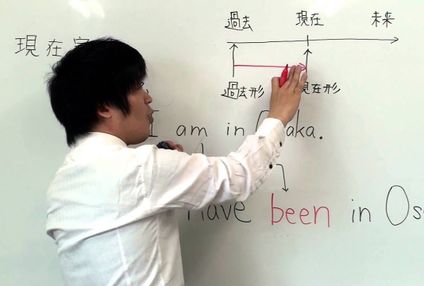 過去 現在 未来
現在
過去形 現在形
I am in Osaka.
have been in Os